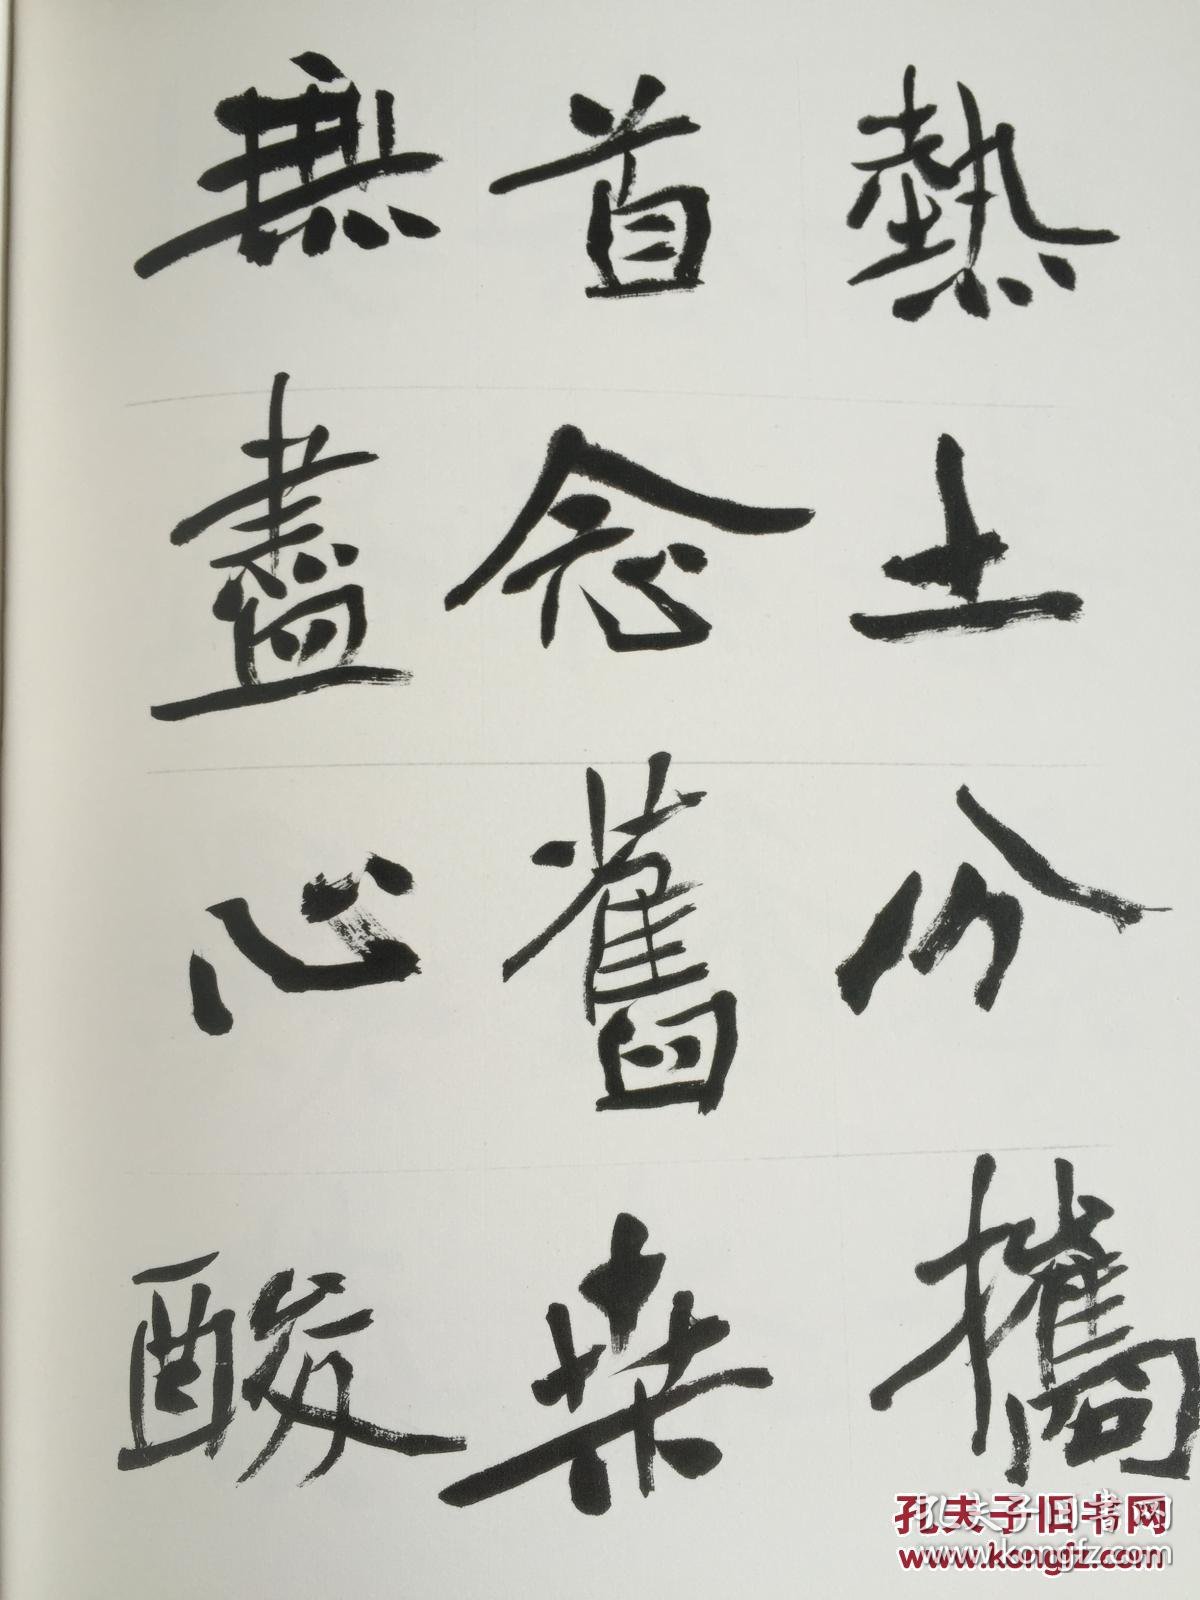 熱土分攜
首念舊桑
無盡心酸
孔夫子旧书网
www.kongfz.com